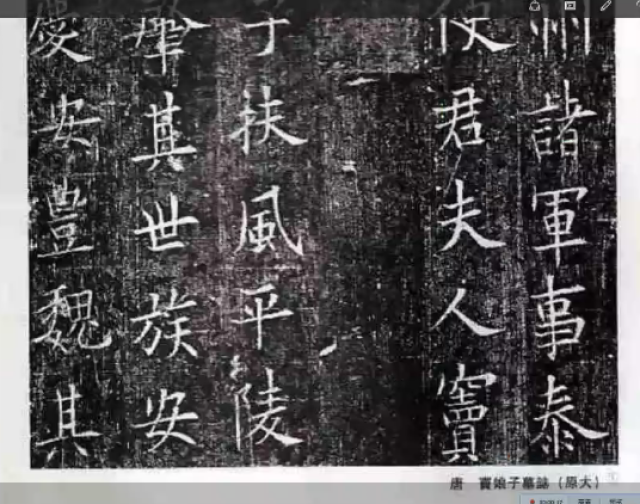 州諸軍事泰
使君夫人竇
子扶風平陵
肇其世族安
慶安豊魏其
唐 竇娘子墓誌（原大）